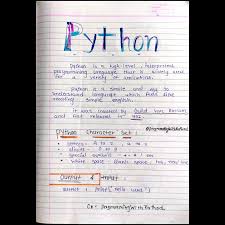 Python
Python is a high level, interpreted
programming language that is widely used for
a variety of applications.
Python is a simple and easy to
understand language which feels like
reading simple english.
It was created by Guido Van Rossum
and first released in 1991.
Python Character Set :
letters - A to Z, a to z
digits - 0 to 9
special symbols - + - * / etc
white space - blank space, tab,
Output & Input :
output : print("hello world")